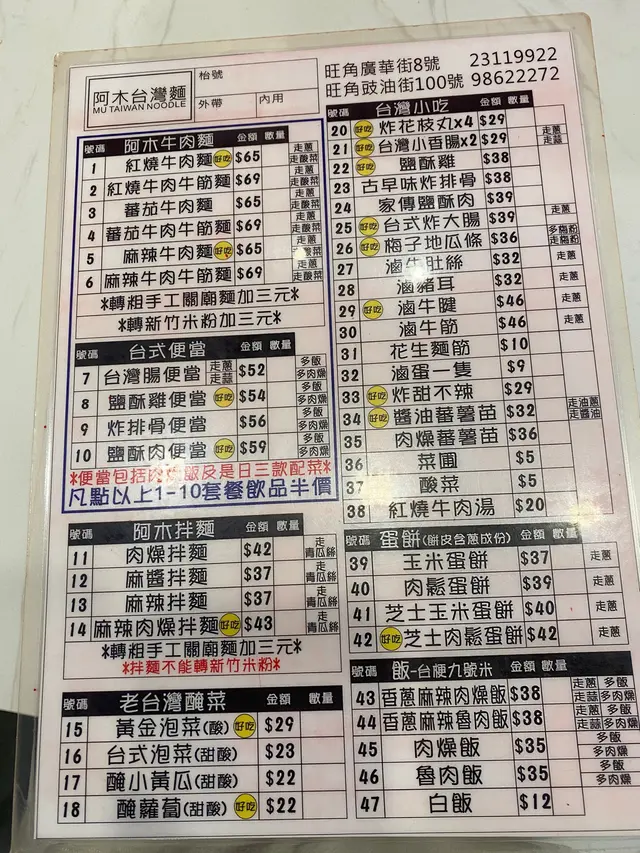 阿木台灣麵
MU TAIWAN NOODLE
枱號
外帶 內用
旺角廣華街8號 23119922
旺角豉油街100號 98622272
號碼 阿木牛肉麵 金額 數量
1 紅燒牛肉麵 好吃 $65 走蔥 走酸菜
2 紅燒牛肉牛筋麵 $69 走蔥 走酸菜
3 蕃茄牛肉麵 $65 走蔥
4 蕃茄牛肉牛筋麵 $69 走蔥 走酸菜
5 麻辣牛肉麵 好吃 $65 走蔥 走酸菜
6 麻辣牛肉牛筋麵 $69 走蔥 走酸菜
*轉粗手工關廟麵加三元*
*轉新竹米粉加三元*
號碼 台式便當 金額 數量
7 台灣腸便當 走蔥 走蒜 $52 多飯 多肉燥
8 鹽酥雞便當 好吃 $54 多飯 多肉燥
9 炸排骨便當 $56 多飯 多肉燥
10 鹽酥肉便當 好吃 $59 多飯 多肉燥
*便當包括肉燥飯及是日三款配菜*
凡點以上1-10套餐飲品半價
號碼 阿木拌麵 金額 數量
11 肉燥拌麵 $42 走青瓜絲
12 麻醬拌麵 $37
13 麻辣拌麵 $37 走青瓜絲
14 麻辣肉燥拌麵 好吃 $43 走青瓜絲
*轉粗手工關廟麵加三元*
*拌麵不能轉新竹米粉*
號碼 老台灣醃菜 金額 數量
15 黃金泡菜(酸) 好吃 $29
16 台式泡菜(甜酸) $23
17 醃小黃瓜(甜酸) $22
18 醃蘿蔔(甜酸) 好吃 $22
號碼 台灣小吃 金額 數量
20 好吃 炸花枝丸x4 $29
21 好吃 台灣小香腸x2 $29 走蔥 走蒜
22 好吃 鹽酥雞 $38
23 古早味炸排骨 $38
24 家傳鹽酥肉 $39
25 好吃 台式炸大腸 $39 走蔥
26 好吃 梅子地瓜條 $36 多梅粉 走梅粉
27 滷牛肚絲 $32 走蔥
28 滷豬耳 $32 走蔥
29 好吃 滷牛腱 $46 走蔥
30 滷牛筋 $46 走蔥
31 花生麵筋 $10
32 滷蛋一隻 $9
33 好吃 炸甜不辣 $29
34 好吃 醬油蕃薯苗 $32 走油蔥 走醬油
35 肉燥蕃薯苗 $36
36 菜圃 $5
37 酸菜 $5
38 紅燒牛肉湯 $20
號碼 蛋餅(餅皮含蔥成份) 金額 數量
39 玉米蛋餅 $37 走蔥
40 肉鬆蛋餅 $39 走蔥
41 芝士玉米蛋餅 $40 走蔥
42 好吃 芝士肉鬆蛋餅 $42 走蔥
號碼 飯-台梗九號米 金額 數量
43 香蔥麻辣肉燥飯 $38 走蔥 多飯 走蒜 多肉燥
44 香蔥麻辣魯肉飯 $38 走蔥 多飯 走蒜 多肉燥
45 肉燥飯 $35 多飯 多肉燥
46 魯肉飯 $35 多飯 多肉燥
47 白飯 $12